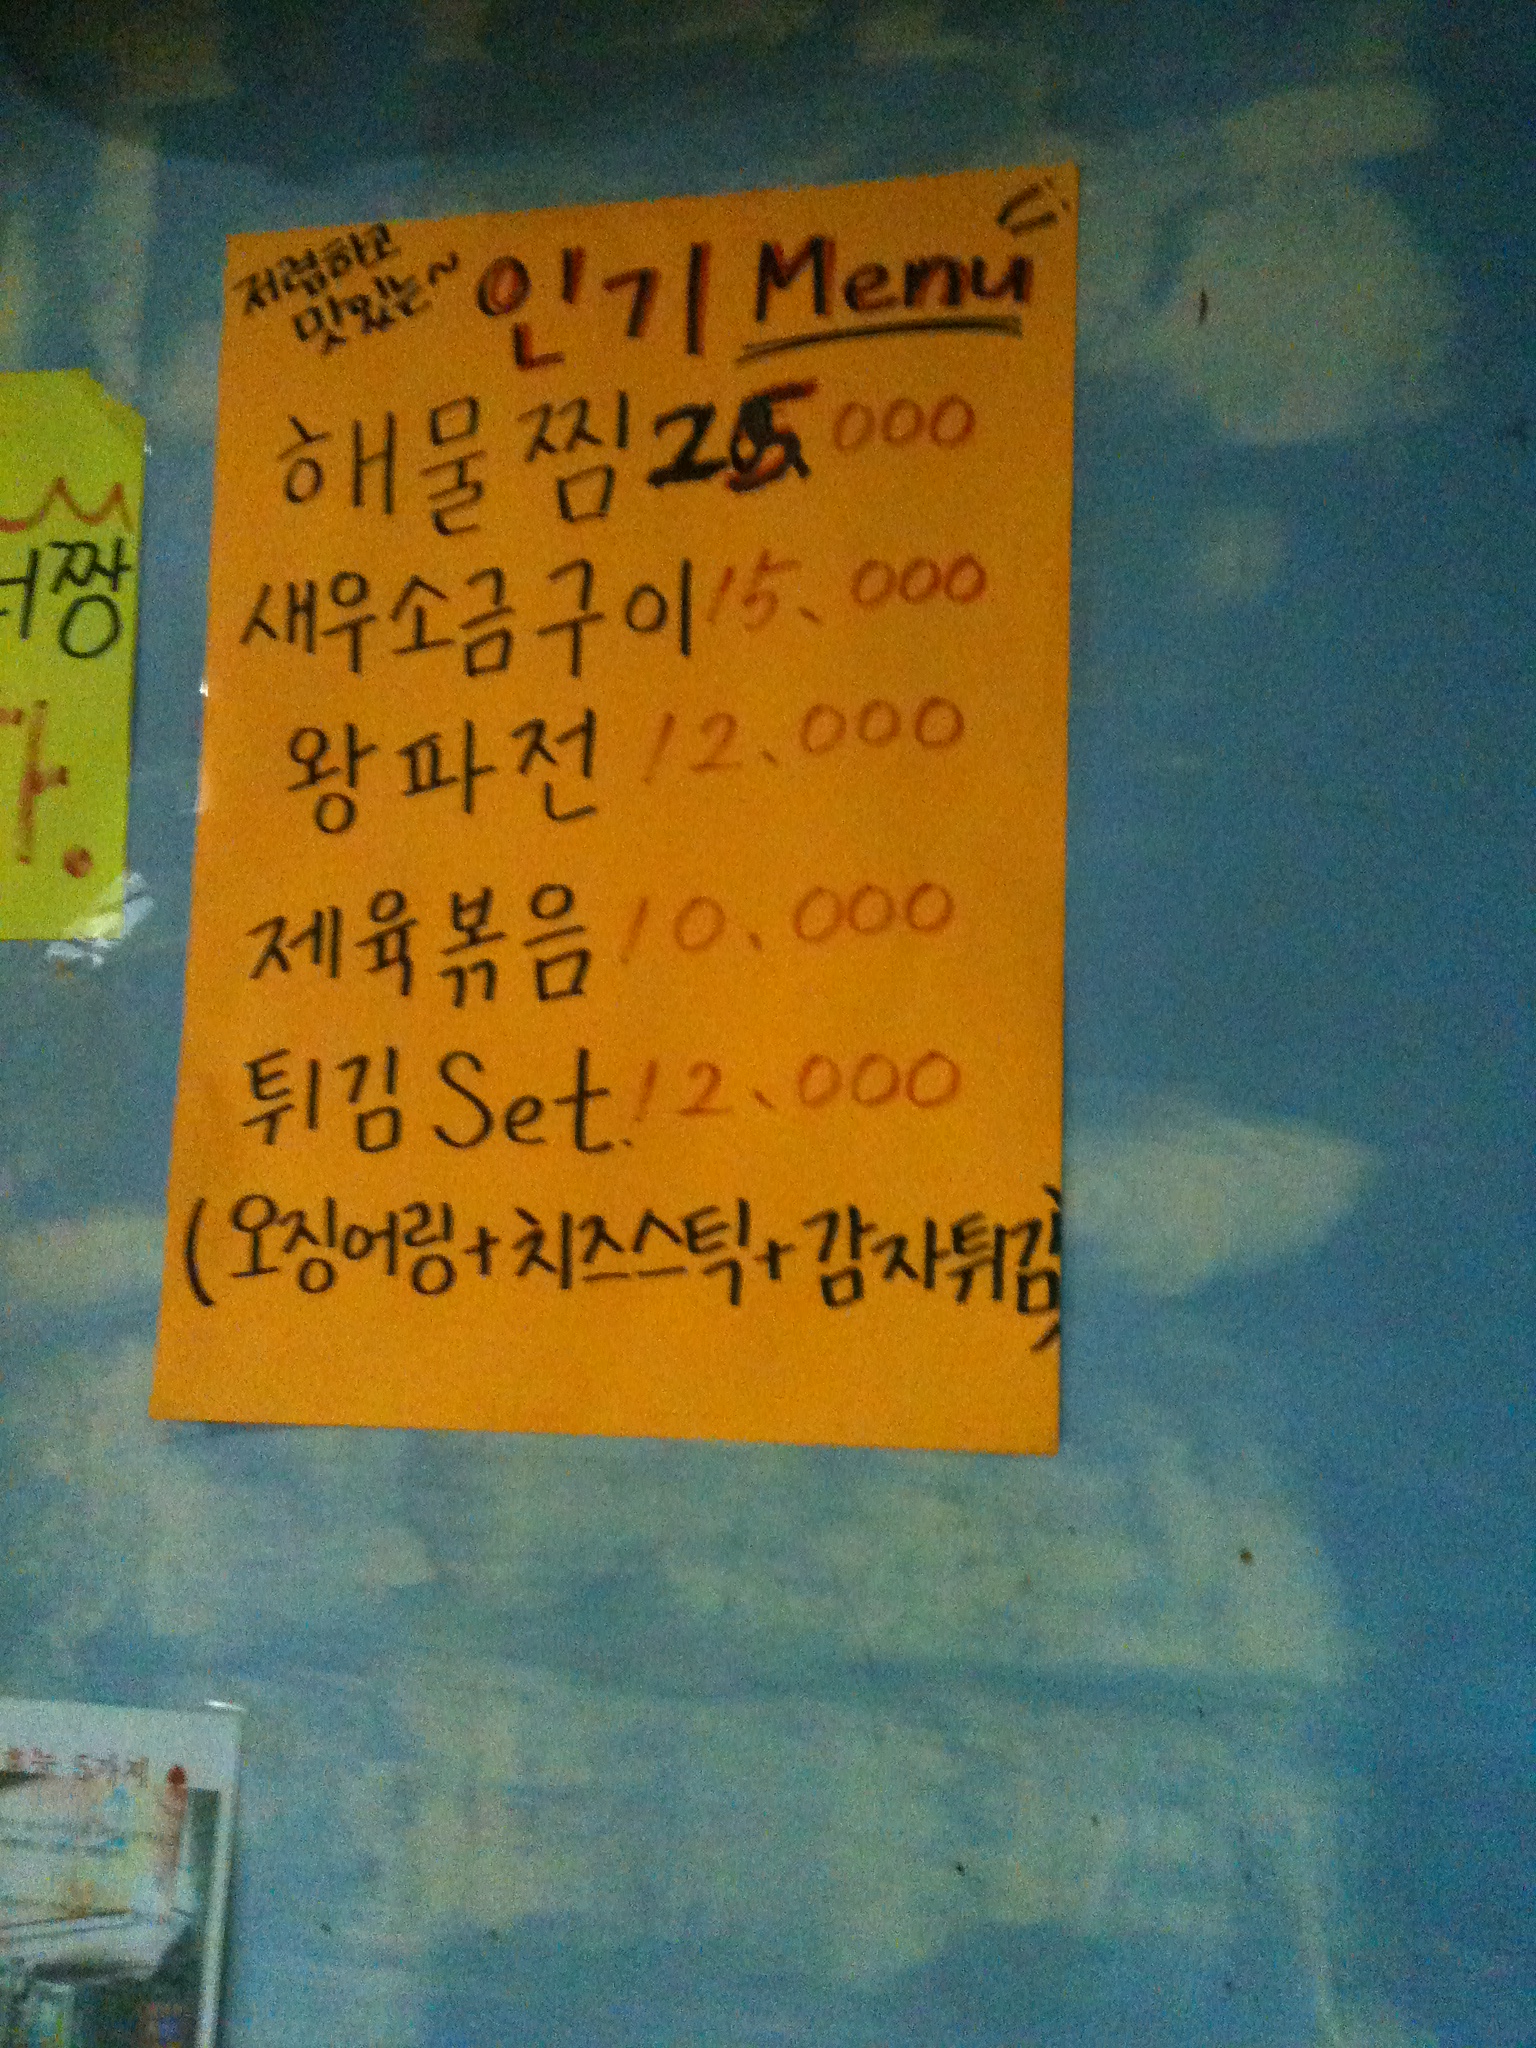 저렴하고
맛있는~ 인기 Menu
해물찜 25000
새우소금구이 15、000
왕파전 12、000
제육볶음 10、000
튀김 Set. 12、000
(오징어링+치즈스틱+감자튀김)
짱